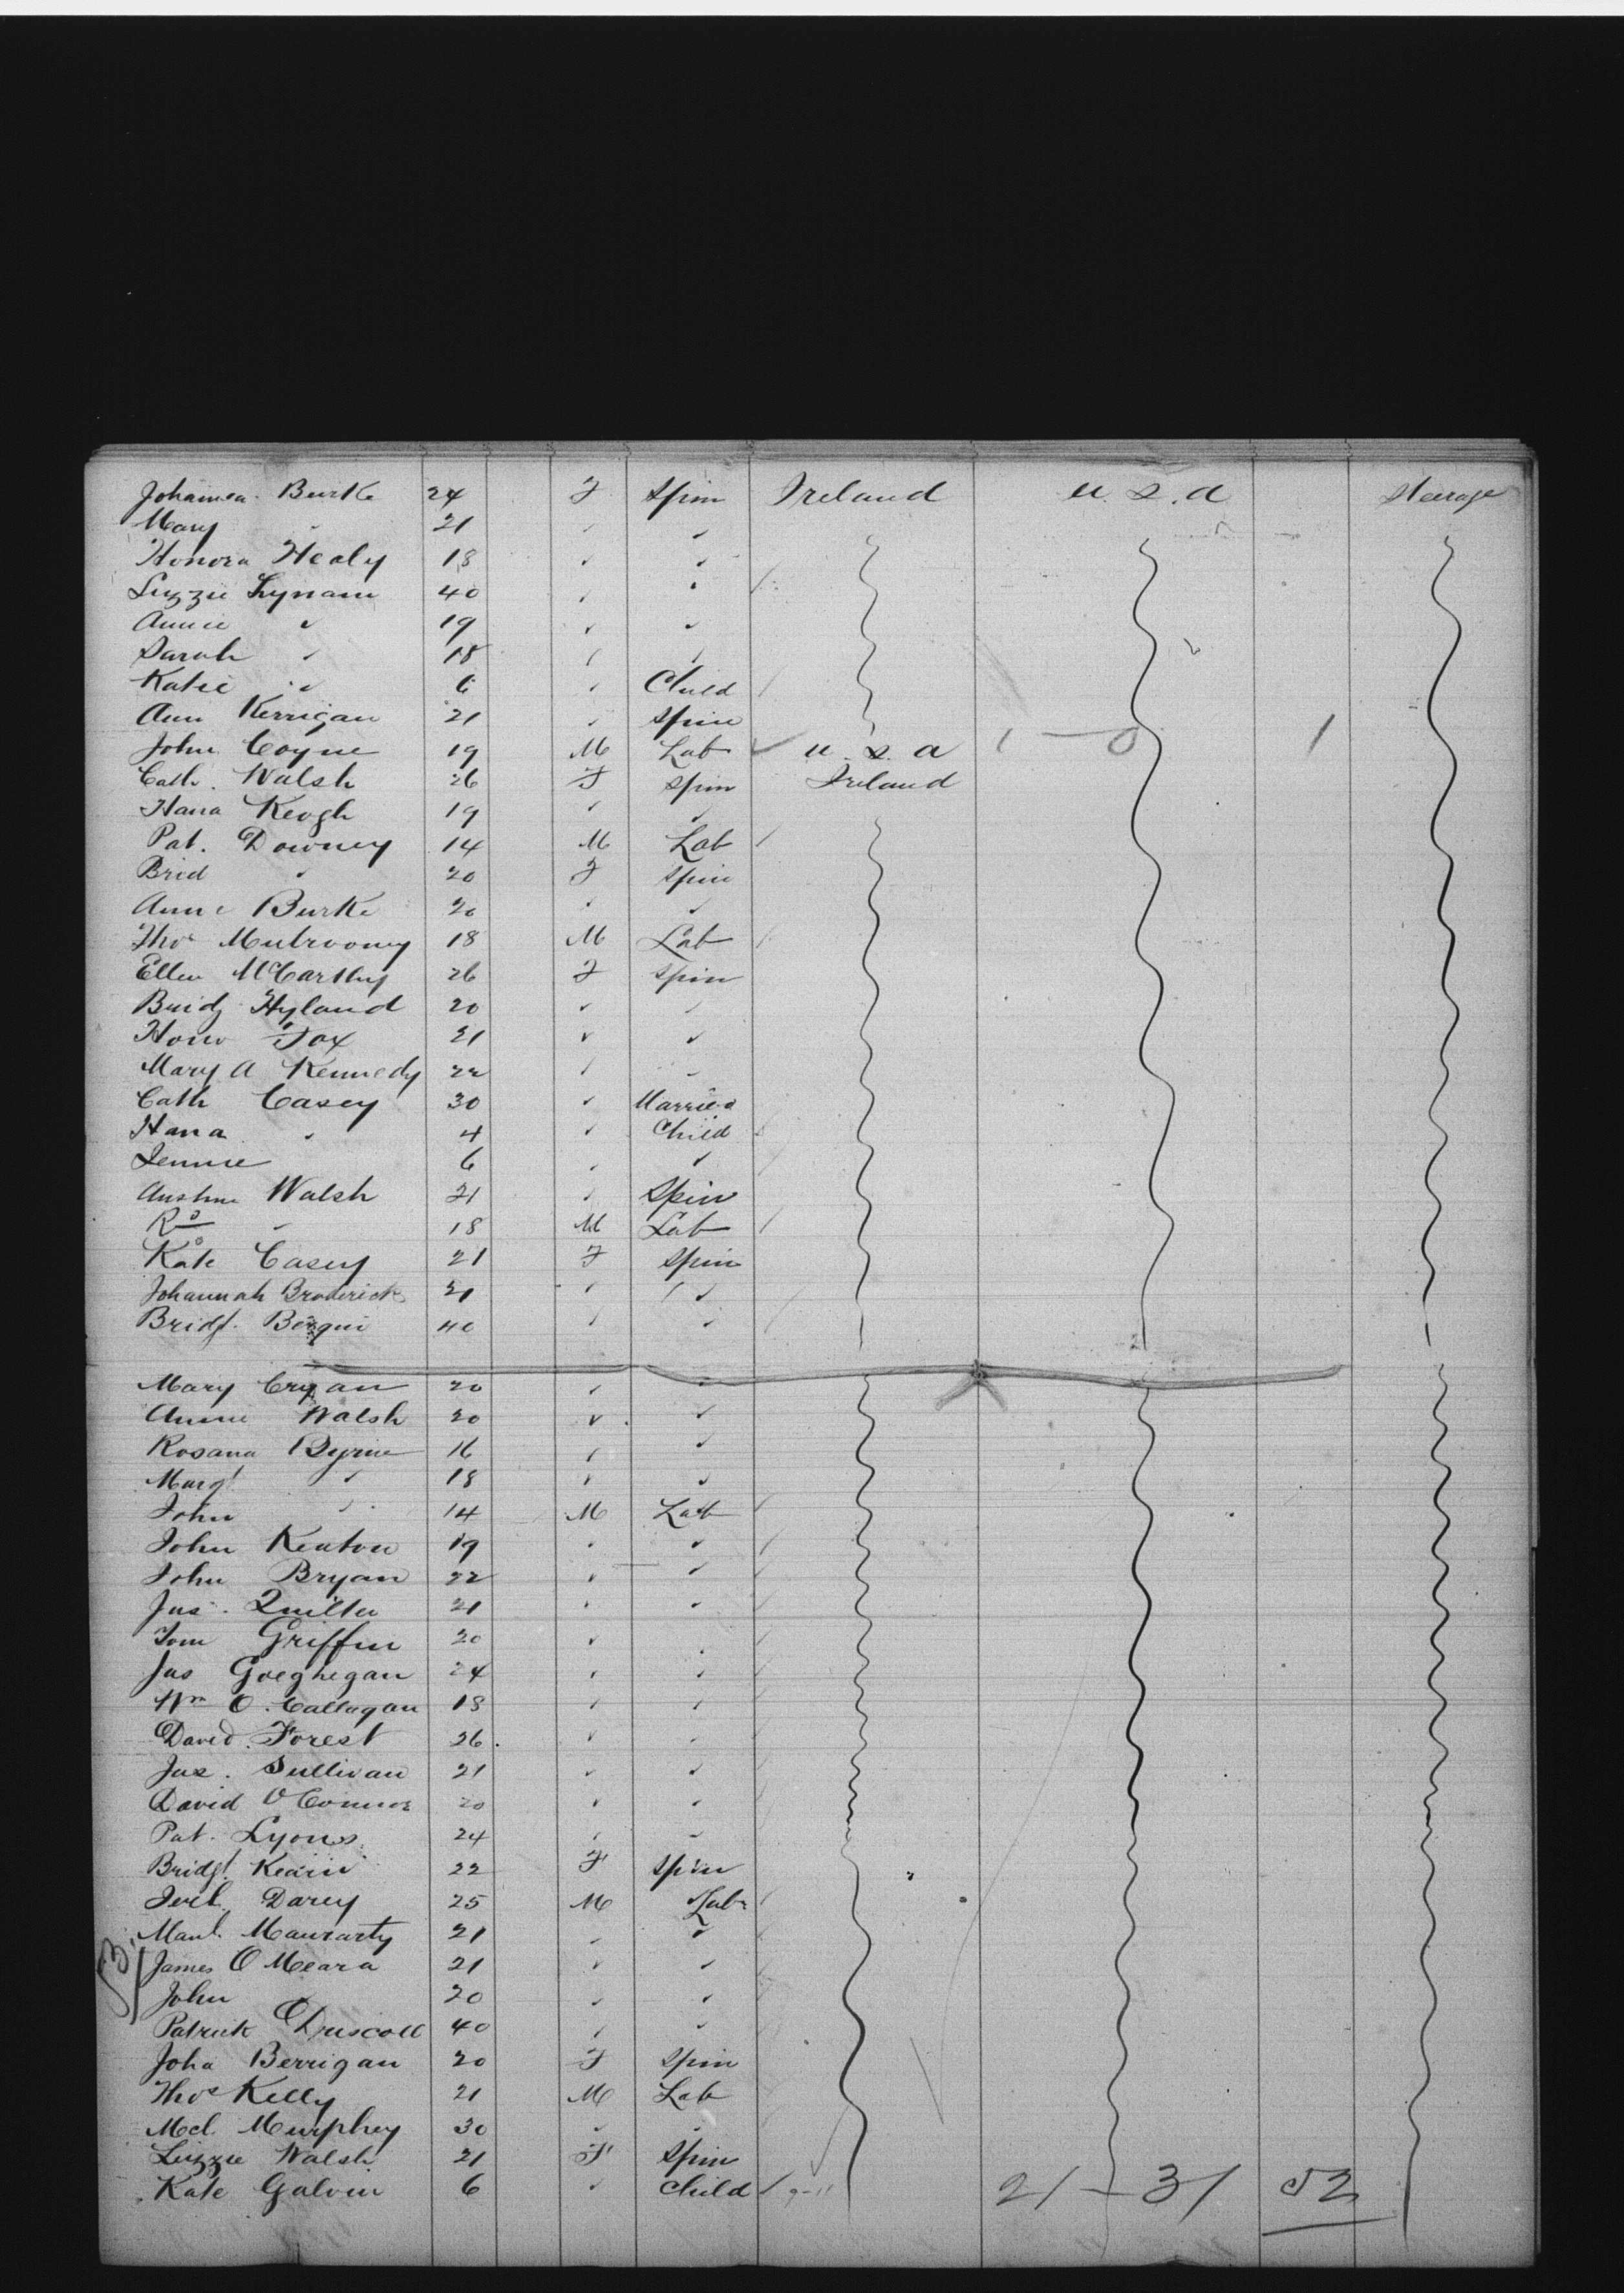 Johanna Burke 24 F Spin Ireland U.S.A Steerage
Mary " 21 " "
Honora Healy 18 " "
Lizzie Lynam 40 " "
Annie " 19 " "
Sarah " 18 " "
Katie " 6 " Child
Ann Kerrigan 21 " Spin
John Coyne 19 M Lab U.S.A 1 — 0 1
Cath. Walsh 26 F Spin Ireland
Hana Keogh 19 " "
Pat. Downey 14 M Lab
Brid " 20 F Spin
Anne Burke 20 " "
Thos Mulrooney 18 M Lab
Ellen McCarthy 26 F Spin
Bridg Hyland 20 " "
Hono Fox 21 " "
Mary A Kennedy 22 " "
Cath Casey 30 " Married
Hana " 4 " Child
Jennie 6 " "
Walsh 21 " Spin
Rd " 18 M Lab
Kate Casey 21 F Spin
Johannah Broderick 21 " "
Bridgt. 40 " "
Mary Cryan 20 " "
Annie Walsh 20 " "
Rosana Byrne 16 " "
Margt " 18 " "
John " 14 M Lab
John Keaton 19 " "
John Bryan 22 " "
Jas. Quilter 21 " "
Tom Griffin 20 " "
Jas Goeghegan 24 " "
Wm O. Callagan 18 " "
David Forest 26 " "
Jas. Sullivan 21 " "
David O'Connor 20 " "
Pat. Lyons 24 " "
Bridgt. 22 F Spin
Darcy 25 M Lab
21 " "
James O Meara 21 " "
John " 20 " "
Patrick O'Driscoll 40 " "
Joha Berrigan 20 F Spin
Thos Kelly 21 M Lab
Mcl. Murphey 30 " "
Lizzie Walsh 21 F Spin
Kate Galvin 6 " Child 21 — 31 52